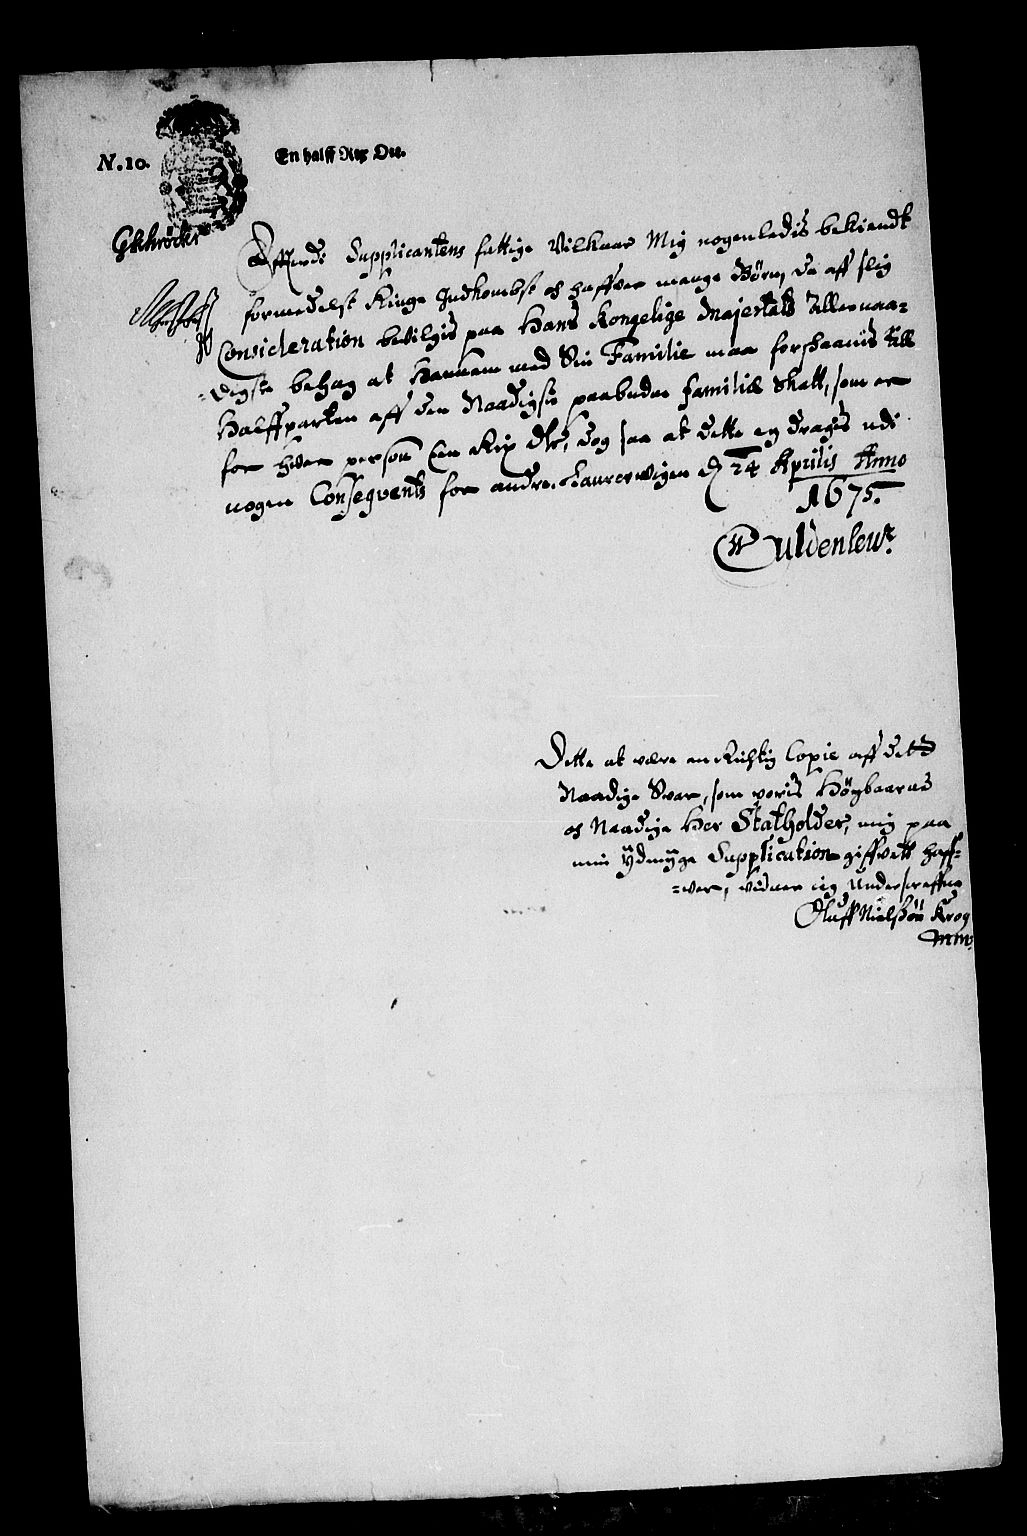 N. 10.
En halff Rix Ort.
GSchröder
Effterdi Supplicantens fattige Vilkaar Mig nogenledis bekiendt
formedelst Ringe Indkombst och haffver mange Börn, Da aff slig
Consideration bevilgis paa Hans Kongelige Majestäts Allernaa-
-digste behag at Hannem med Sin Familie maa forskaanis till
Halffparten aff den Naadigst paabudne Familiæ Skatt, som er
for hver person Een Rix dlr, dog saa at dette ey drages udi
nogen Conseqvents for andre. Laurwigen d 24 Aprilis Anno
1675.
Guldenleuw.
Dette at være en Richtig Copie aff dett
Naadige Svar, som voris Höybaarne
och Naadige Her Statholder, mig paa
min ydmyge Supplication giffvett haff-
-ver, vidner ieg underschreffne
Oluff Nielsßön Krog
mm.